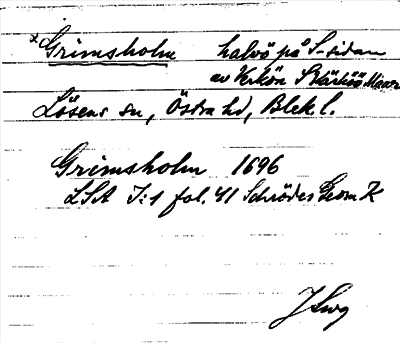 x Grimsholm halvö på S-sidan
av
Lösens sn, Östra hd, Blek. l.
Grimsholm 1696
LSA I:1 fol. 41 Schröders Geom K